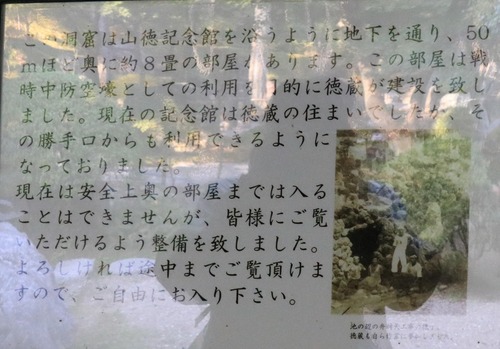 この洞窟は山徳記念館を沿うように地下を通り、50
mほど奥に約8畳の部屋があります。この部屋は戦
時中防空壕としての利用を目的に徳蔵が建設を致し
ました。現在の記念館は徳蔵の住まいでしたが、そ
の勝手口からも利用できるように
なっておりました。
現在は安全上奥の部屋までは入る
ことはできませんが、皆様にご覧
いただけるよう整備を致しました。
よろしければ途中までご覧頂けま
すので、ご自由にお入り下さい。